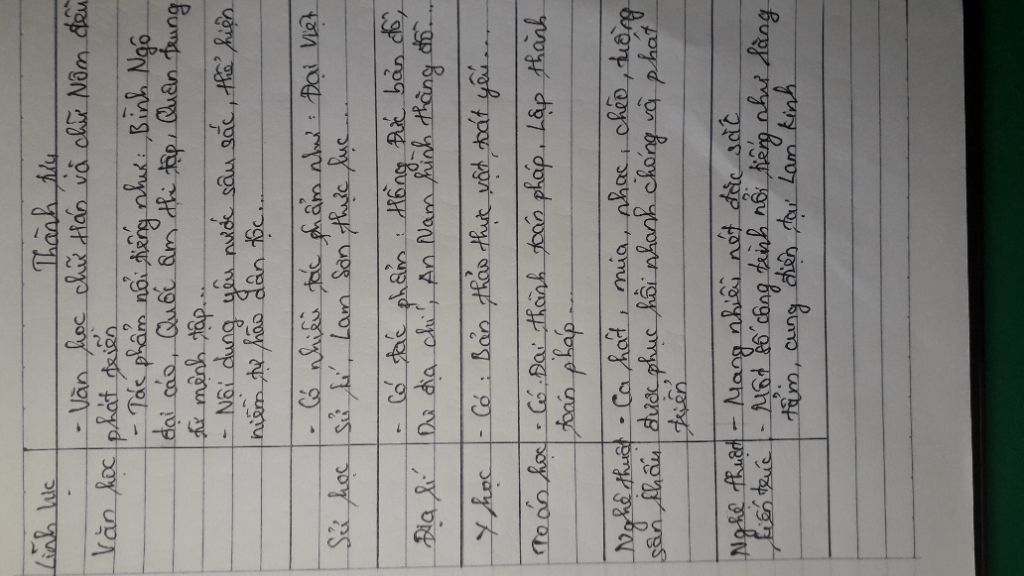 Lĩnh vực Thành tựu
Văn học - Văn học chữ Hán và chữ Nôm đều
phát triển
- Tác phẩm nổi tiếng như: Bình Ngô
đại cáo, Quốc âm thi tập, Quân trung
từ mệnh tập...
- Nội dung yêu nước sâu sắc, thể hiện
niềm tự hào dân tộc...
Sử học - Có nhiều tác phẩm như: Đại Việt
Sử kí, Lam Sơn thực lục...
Địa lí - Có tác phẩm: Hồng Đức bản đồ,
Dư địa chí, An Nam hình thăng đồ...
Y học - Có: Bản thảo thực vật toát yếu....
Toán học - Có: Đại thành toán pháp, Lập thành
toán pháp...
Nghệ thuật - Ca hát, múa, nhạc, chèo, tuồng
sân khấu được phục hồi nhanh chóng và phát
triển
Nghệ thuật - Mang nhiều nét đặc sắc
kiến trúc - Một số công trình nổi tiếng như lăng
tẩm, cung điện tại Lam Kinh